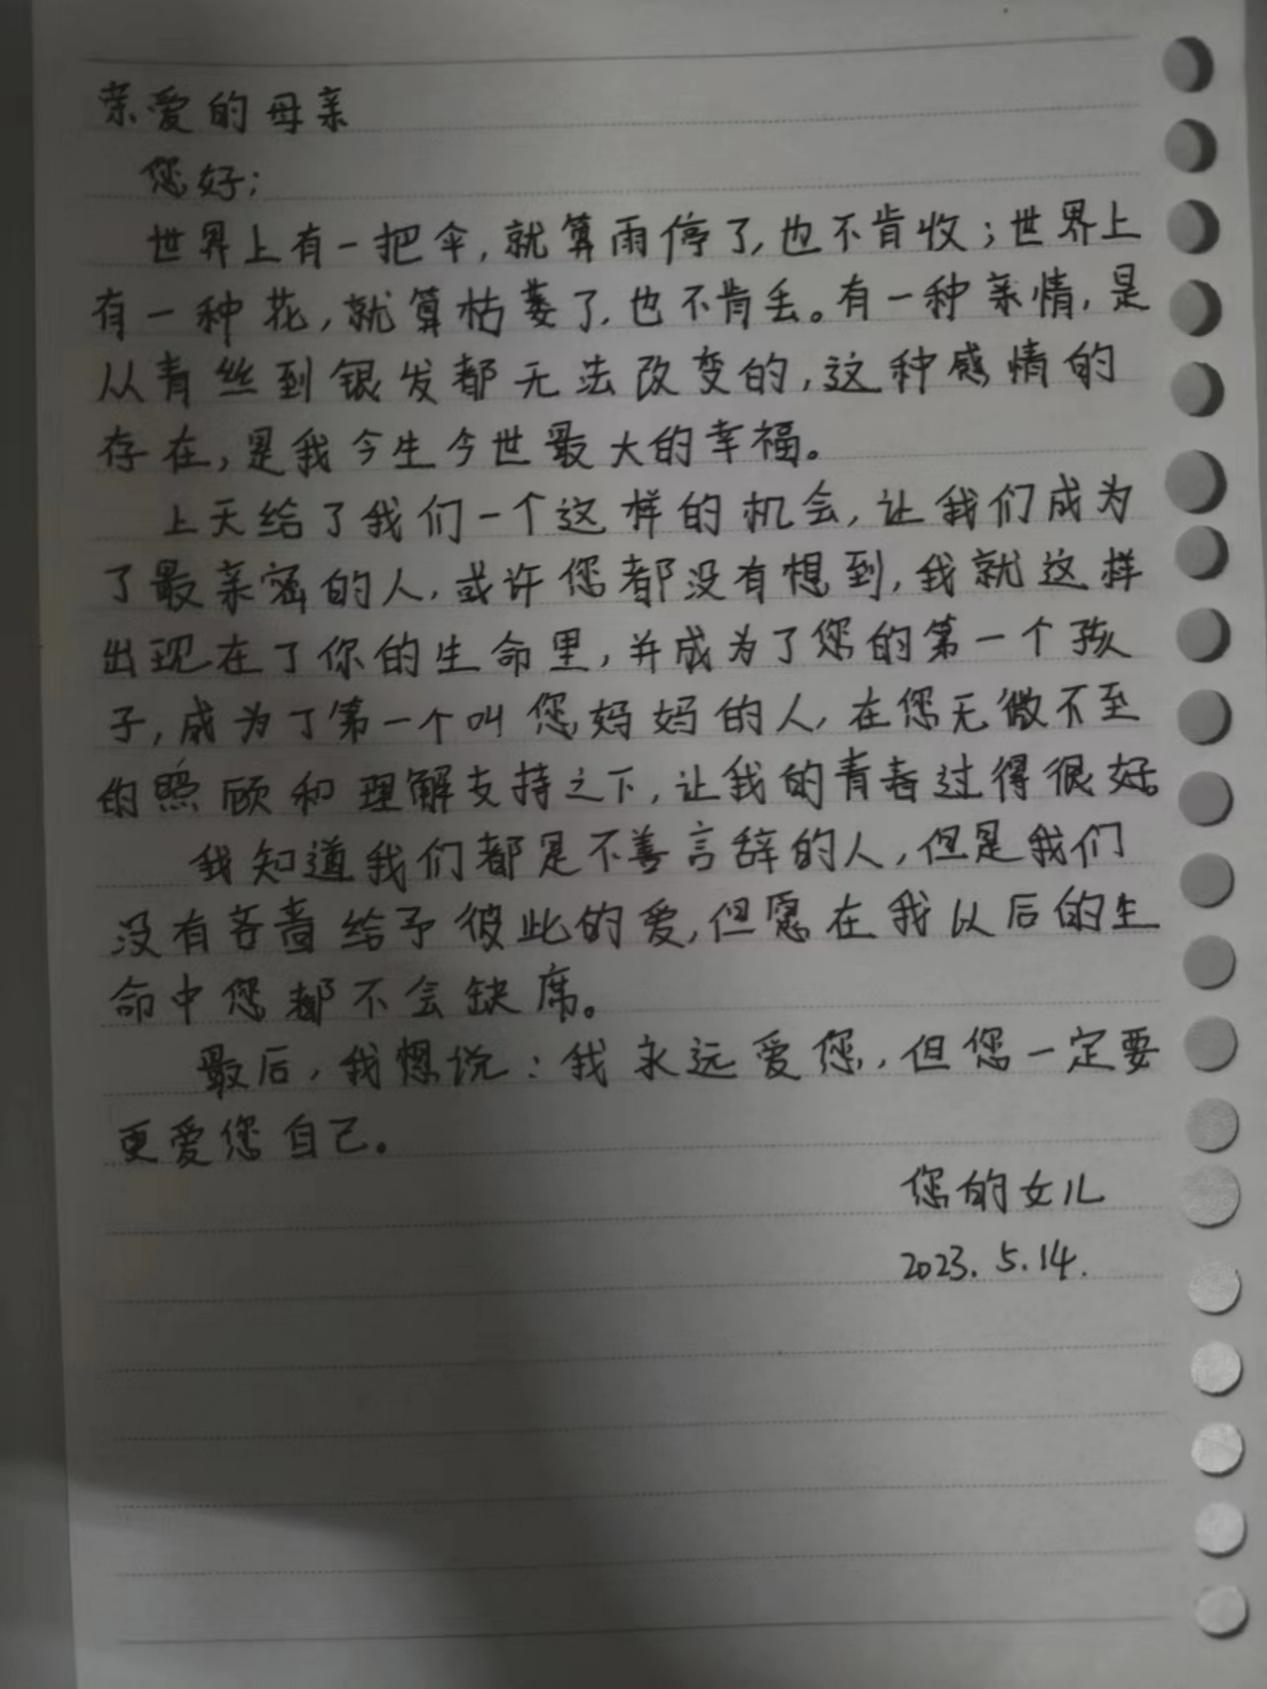 亲爱的母亲
您好：
世界上有一把伞，就算雨停了，也不肯收；世界上
有一种花，就算枯萎了，也不肯丢。有一种亲情，是
从青丝到银发都无法改变的，这种感情的
存在，是我今生今世最大的幸福。
上天给了我们一个这样的机会，让我们成为
了最亲密的人，或许您都没有想到，我就这样
出现在了你的生命里，并成为了您的第一个孩
子，成为了第一个叫您妈妈的人，在您无微不至
的照顾和理解支持之下，让我的青春过得很好。
我知道我们都是不善言辞的人，但是我们
没有吝啬给予彼此的爱，但愿在我以后的生
命中您都不会缺席。
最后，我想说：我永远爱您，但您一定要
更爱您自己。
您的女儿
2023.5.14.